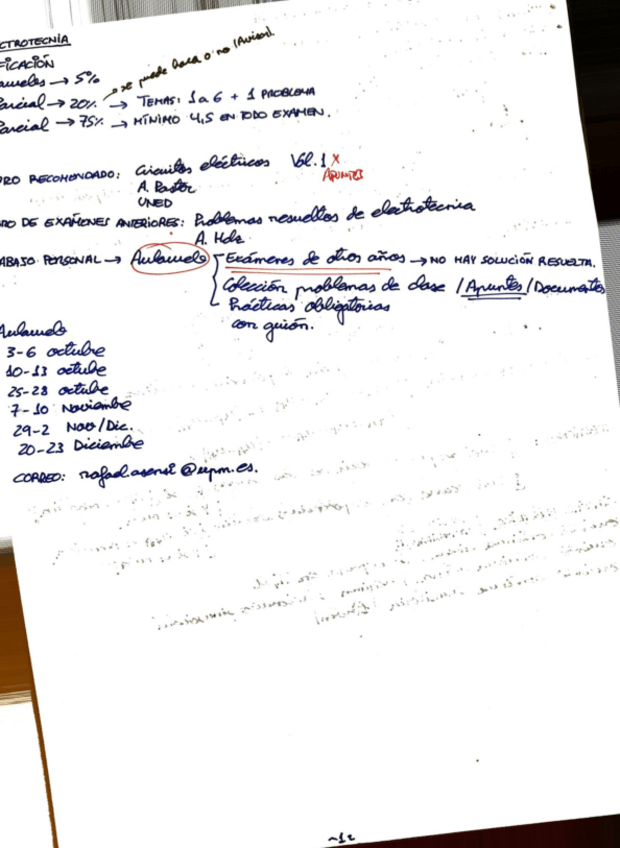 CTROTECNIA
FICACIÓN
aumeles → 5% → se puede hacer o no (Avisar).
Parcial → 20% → TEMAS: 1 a 6 + 1 PROBLEMA
Parcial → 75% → MÍNIMO 4,5 EN TODO EXAMEN.
BRO RECOMENDADO: Circuitos eléctricos Vol. 1 x
APUNTES
A. Pastor
UNED
RO DE EXÁMENES ANTERIORES: Problemas resueltos de electrotecnia
A. Hdz
ABAJO PERSONAL → Aulaweb Exámenes de otros años → NO HAY SOLUCIÓN RESUELTA.
Colección problemas de clase / Apuntes / Documentos
Prácticas obligatorias
con guión.
Aulaweb
3-6 octubre
10-13 octubre
25-28 octubre
7-10 Noviembre
29-2 Nov/Dic.
20-23 Diciembre
CORREO: rafael.asensi@upm.es.